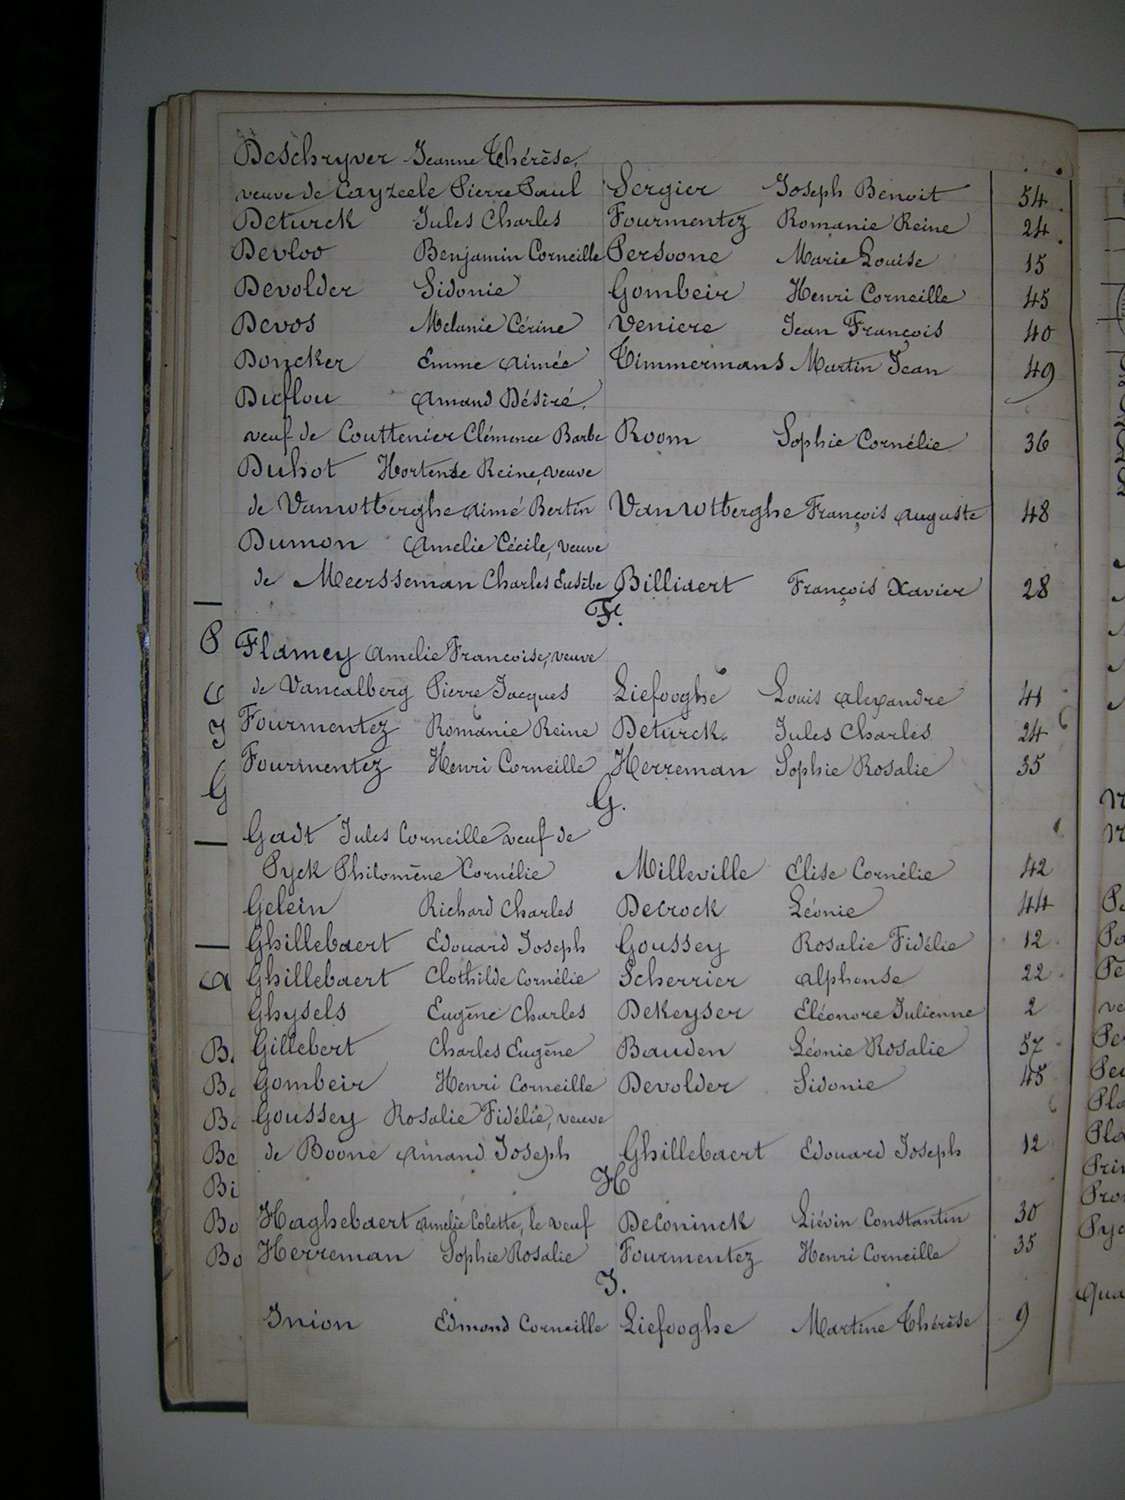 Deschryver Jeanne Thérèse,
veuve de Cayzeele Pierre Paul Sergier Joseph Benoit 54
Deturck Jules Charles Fourmentez Romanie Reine 24
Devloo Benjamin Corneille Persoone Marie Louise 15
Devolder Sidonie Gombeir Henri Corneille 45
Devos Melanie Cérine Veniere Jean François 40
Doncker Emme Aimée Timmermans Martin Jean 49
Duflou Amand Désiré,
veuf de Couttenier Clémence Barbe Room Sophie Cornélie 36
Duhot Hortense Reine, veuve
de Vanwtberghe Aimé Bertin Vanwtberghe François Auguste 48
Dumon Amelie Cécile, veuve
de Meersseman Charles Eusèbe Billiaert François Xavier 28
F.
Flamey Amelie Francoise, veuve
de Vancalberg Pierre Jacques Liefooghe Louis Alexandre 41
Fourmentez Romanie Reine Deturck Jules Charles 24
Fourmentez Henri Corneille Herreman Sophie Rosalie 35
G.
Gadt Jules Corneille veuf de
Pyck Philomène Cornélie Milleville Elise Cornélie 42
Gelein Richard Charles Decrock Léonie 44
Ghillebaert Edouard Joseph Goussey Rosalie Fidélie 12
Ghillebaert Clothilde Cornélie Scherrier Alphonse 22
Ghysels Eugène Charles DeKeyser Eléonore Julienne 2
Gillebert Charles Eugène Bauden Léonie Rosalie 57
Gombeir Henri Corneille Devolder Sidonie 45
Goussey Rosalie Fidélie, veuve
de Boone Amand Joseph Ghillebaert Edouard Joseph 12
H
Haghebaert Amelie Colette, le veuf DeConinck Liévin Constantin 30
Herreman Sophie Rosalie Fourmentez Henri Corneille 35
J.
Inion Edmond Corneille Liefooghe Martine Thérèse 9